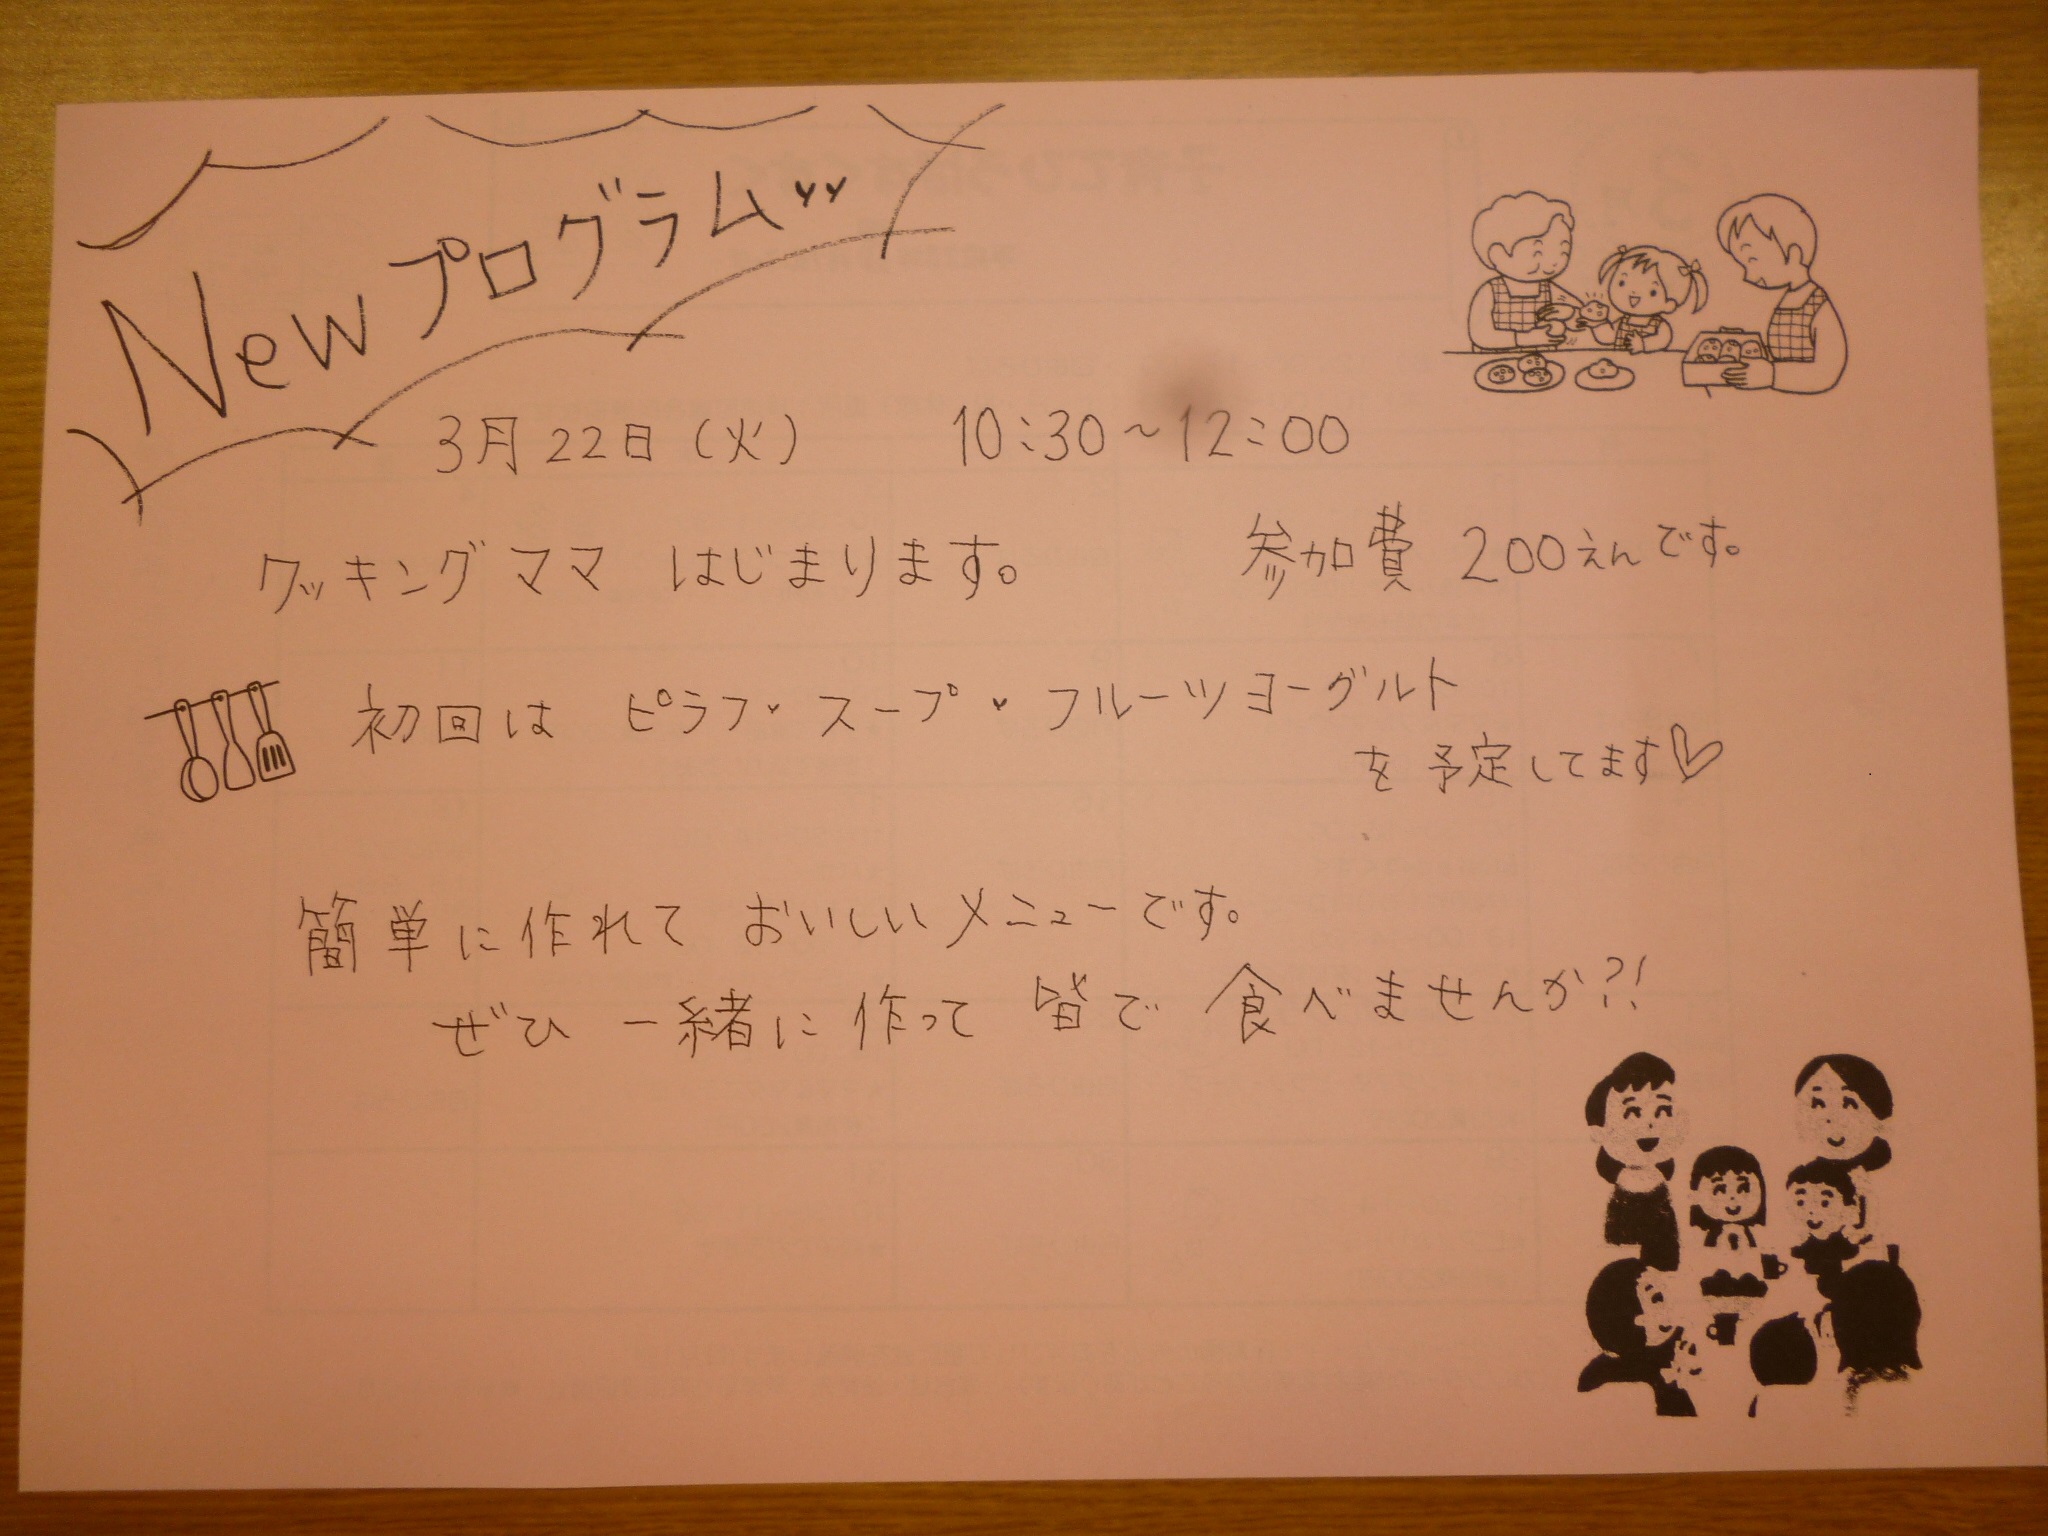 Newプログラム
3月22日(火) 10:30~12:00
クッキングママ はじまります。 参加費 200えんです。
初回は ピラフ・スープ・フルーツヨーグルト
を予定してます♡
簡単に作れて おいしいメニューです。
ぜひ 一緒に 作って 皆で 食べませんか?!